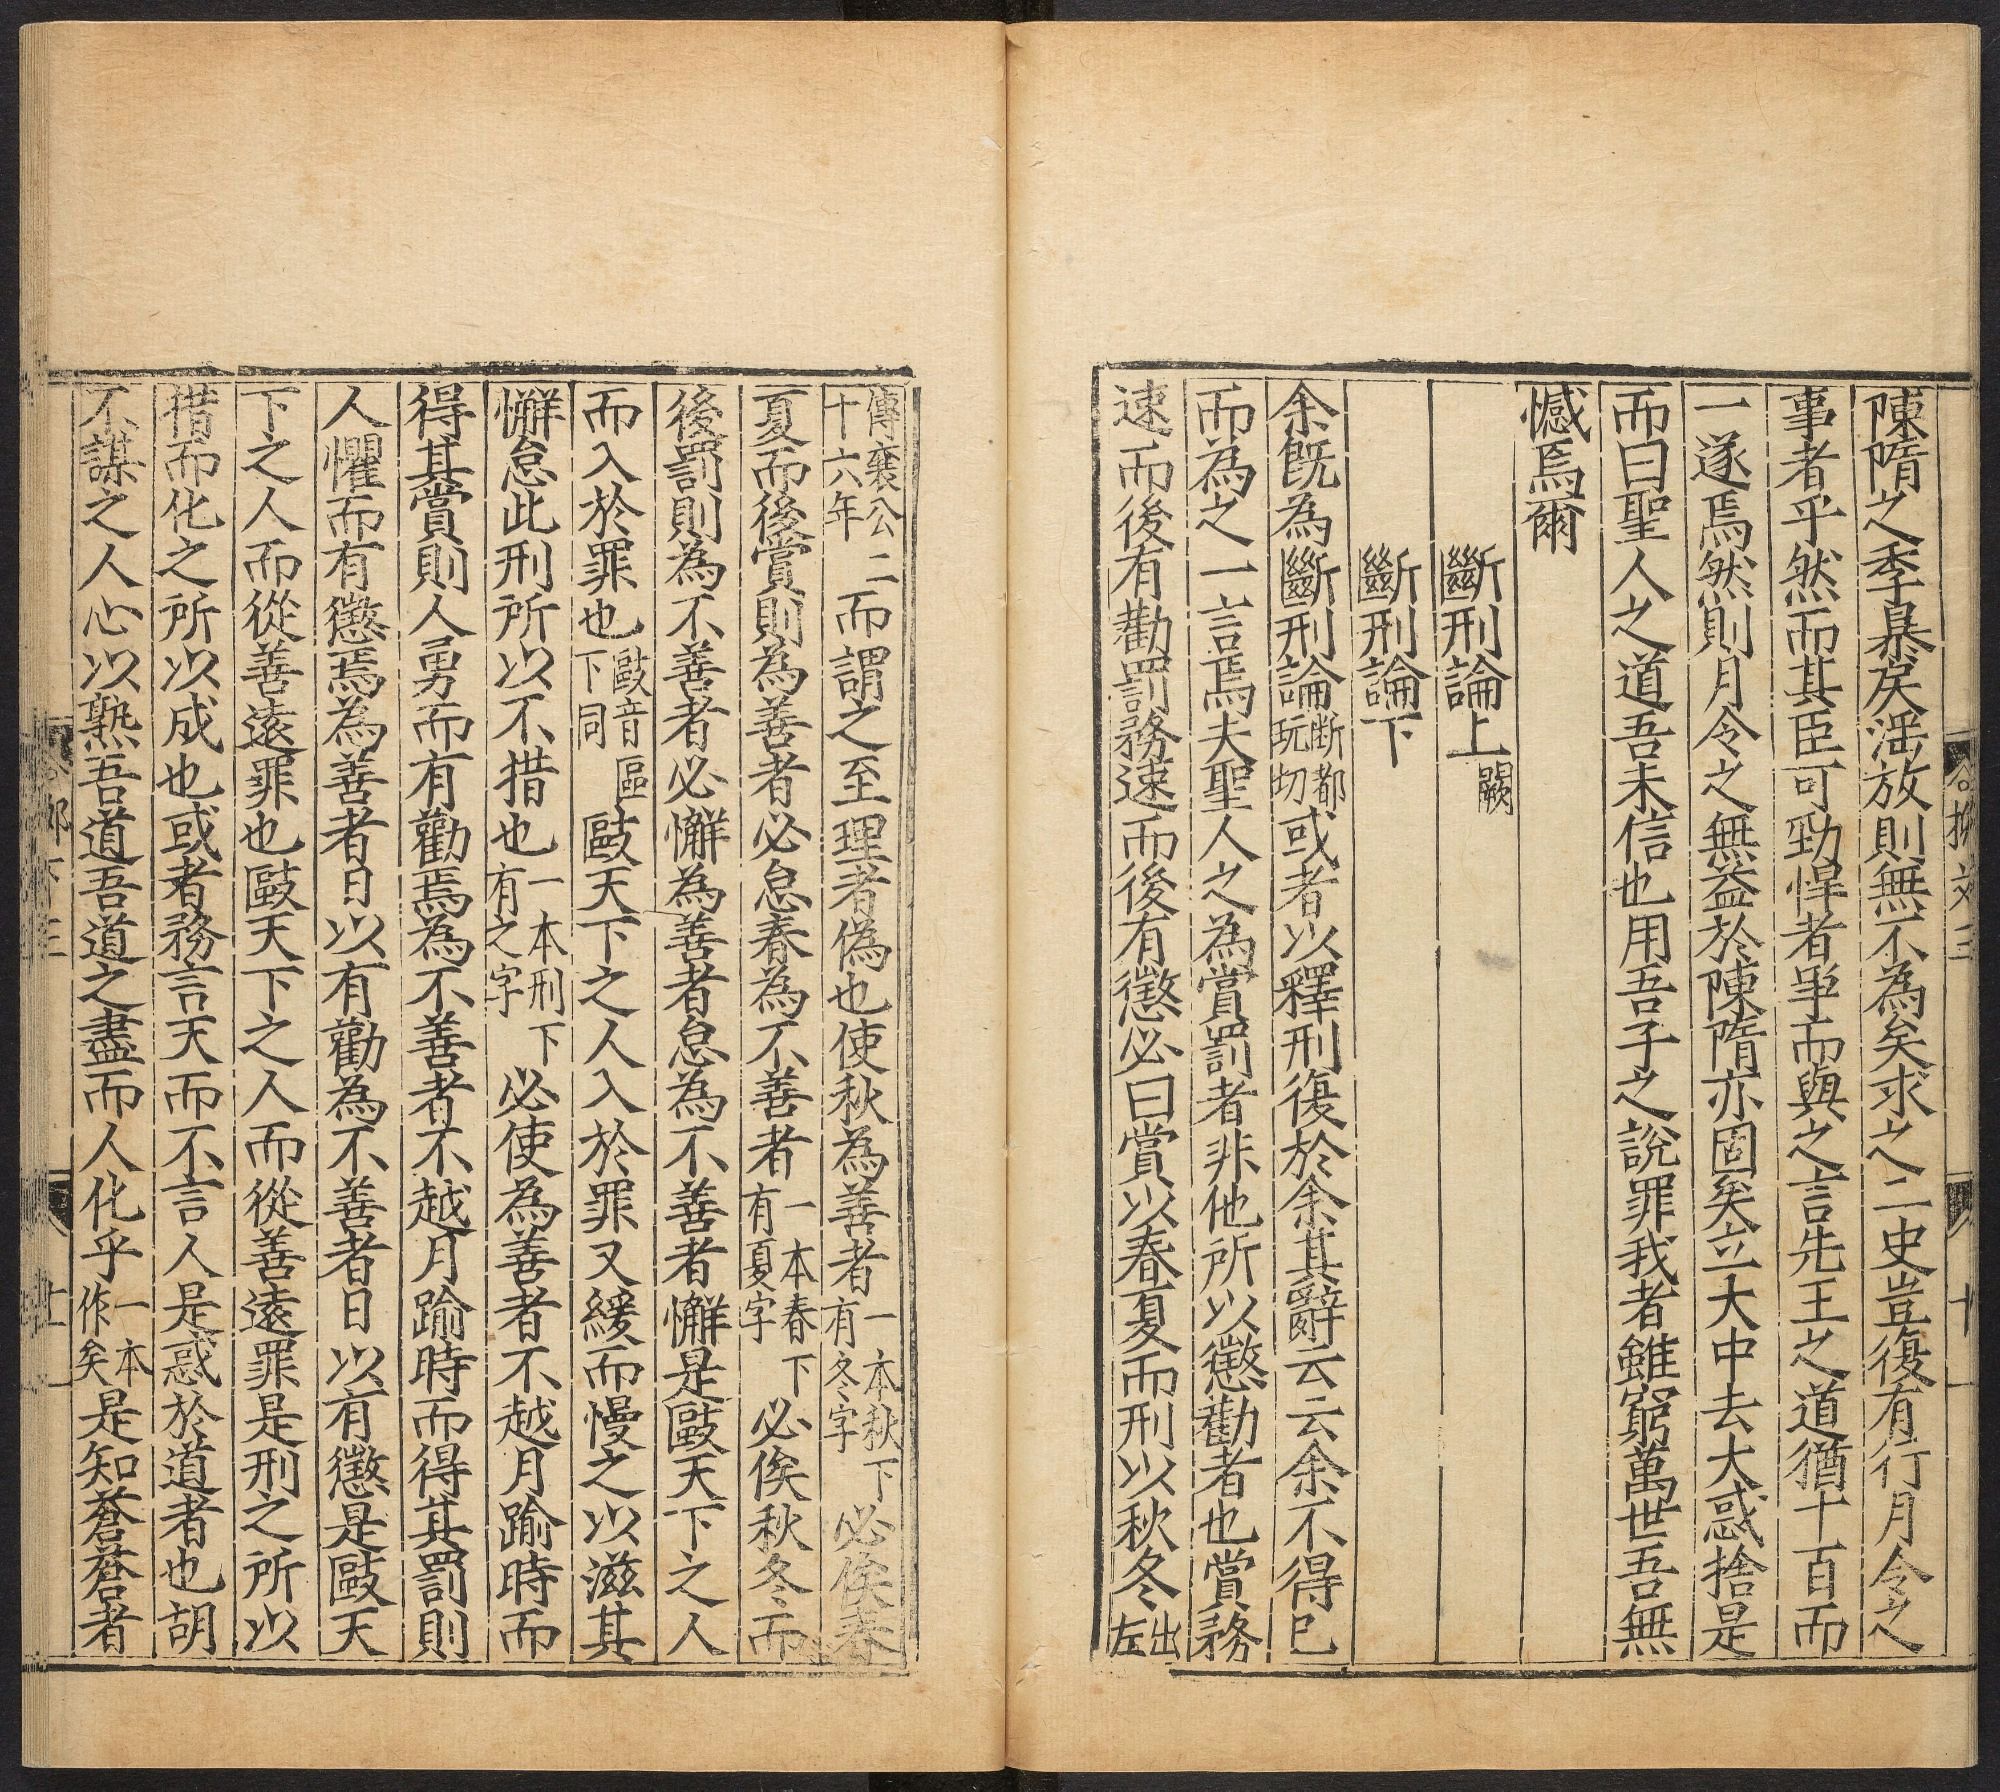 陳隋之季暴戾淫放則無不為矣求之二史豈復有行月令之
事者乎然而其臣可勁悍者爭而與之言先王之道猶十百而
一遂焉然則月令之無益於陳隋亦固矣立大中去大惑捨是
而曰聖人之道吾未信也用吾子之說罪我者雖窮萬世吾無
憾焉爾
斷刑論上闕
斷刑論下
余既為斷刑論斷都玩切或者以釋刑復於余其辭云云余不得已
而為之一言焉夫聖人之為賞罰者非他所以懲勸者也賞務
速而後有勸罰務速而後有懲必曰賞以春夏而刑以秋冬出左
傳襄公二十六年而謂之至理者偽也使秋為善者一本秋下有冬字必俟春
夏而後賞則為善者必怠春為不善者一本春下有夏字必俟秋冬而
後罰則為不善者必懈為善者怠為不善者懈是敺天下之人
而入於罪也敺音區下同敺天下之人入於罪又緩而慢之以滋其
懈怠此刑所以不措也一本刑下有之字必使為善者不越月踰時而
得其賞則人勇而有勸焉為不善者不越月踰時而得其罰則
人懼而有懲焉為善者日以有勸為不善者日以有懲是敺天
下之人而從善遠罪也敺天下之人而從善遠罪是刑之所以
措而化之所以成也或者務言天而不言人是惑於道者也胡
不謀之人心以熟吾道吾道之盡而人化乎一本作矣是知蒼蒼者